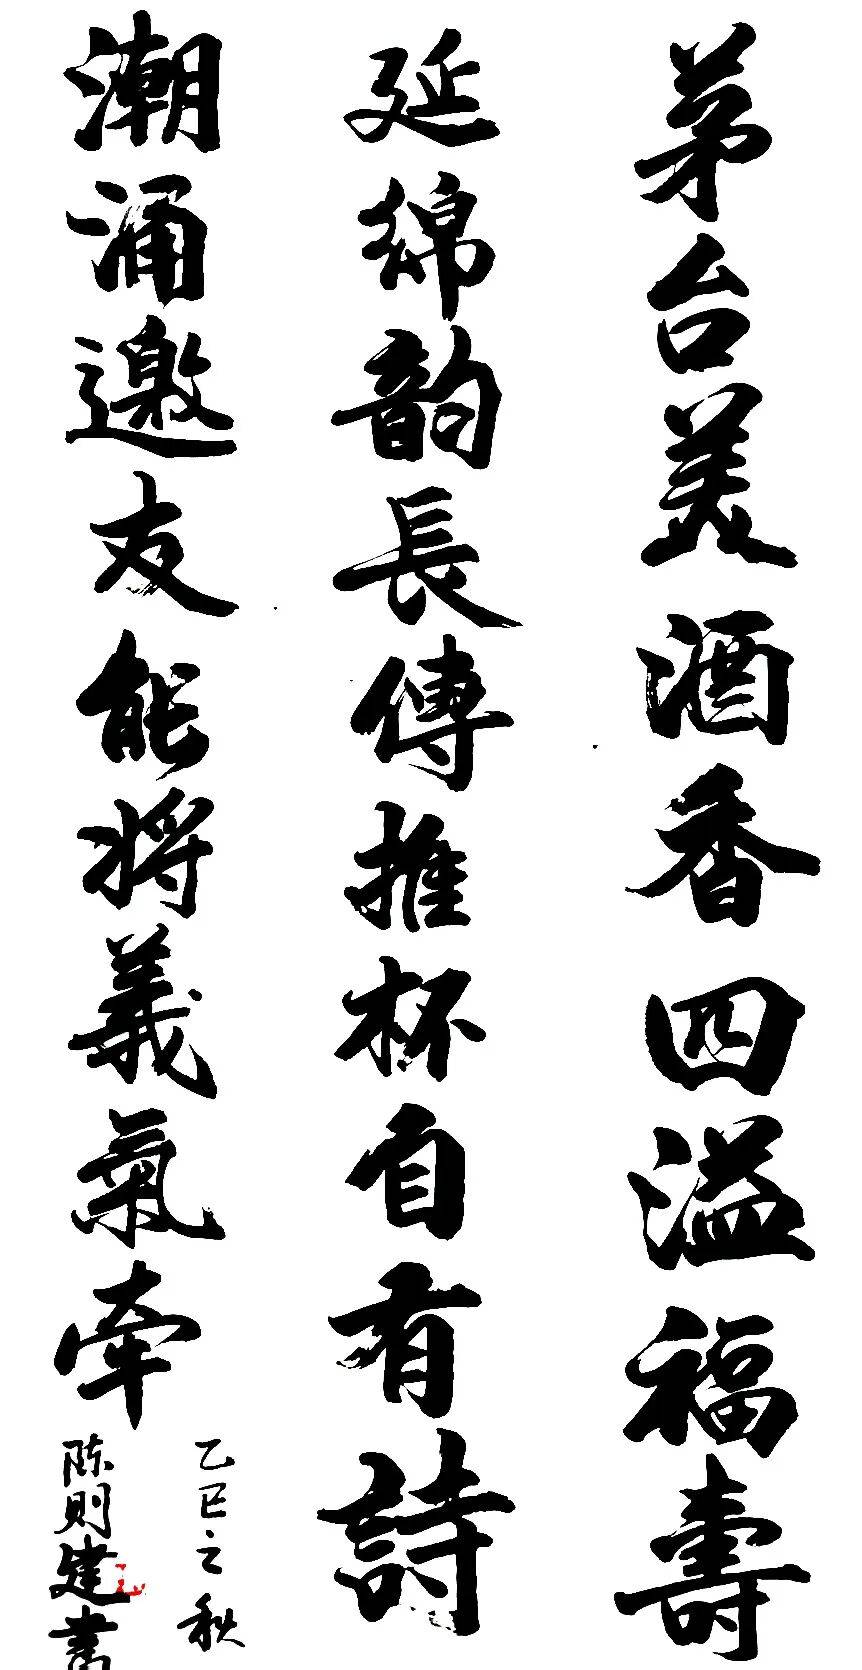 茅台美酒香四溢福壽
延綿韵長傳推杯自有詩
潮涌邀友能將義氣牽
乙巳之秋
陈则建書